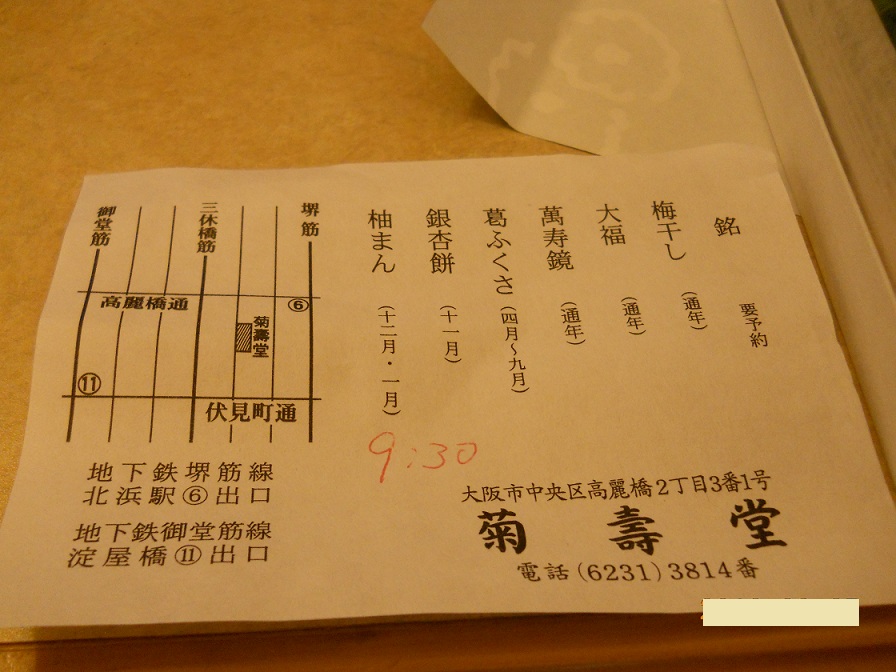 銘 要予約
梅干し (通年)
大福 (通年)
萬寿鏡 (通年)
葛ふくさ (四月〜九月)
銀杏餅 (十一月)
柚まん (十二月・一月)
9:30
堺筋
三休橋筋
御堂筋
高麗橋通
⑥
菊壽堂
⑪
伏見町通
地下鉄堺筋線
北浜駅⑥出口
地下鉄御堂筋線
淀屋橋⑪出口
大阪市中央区高麗橋2丁目3番1号
菊壽堂
電話(6231)3814番